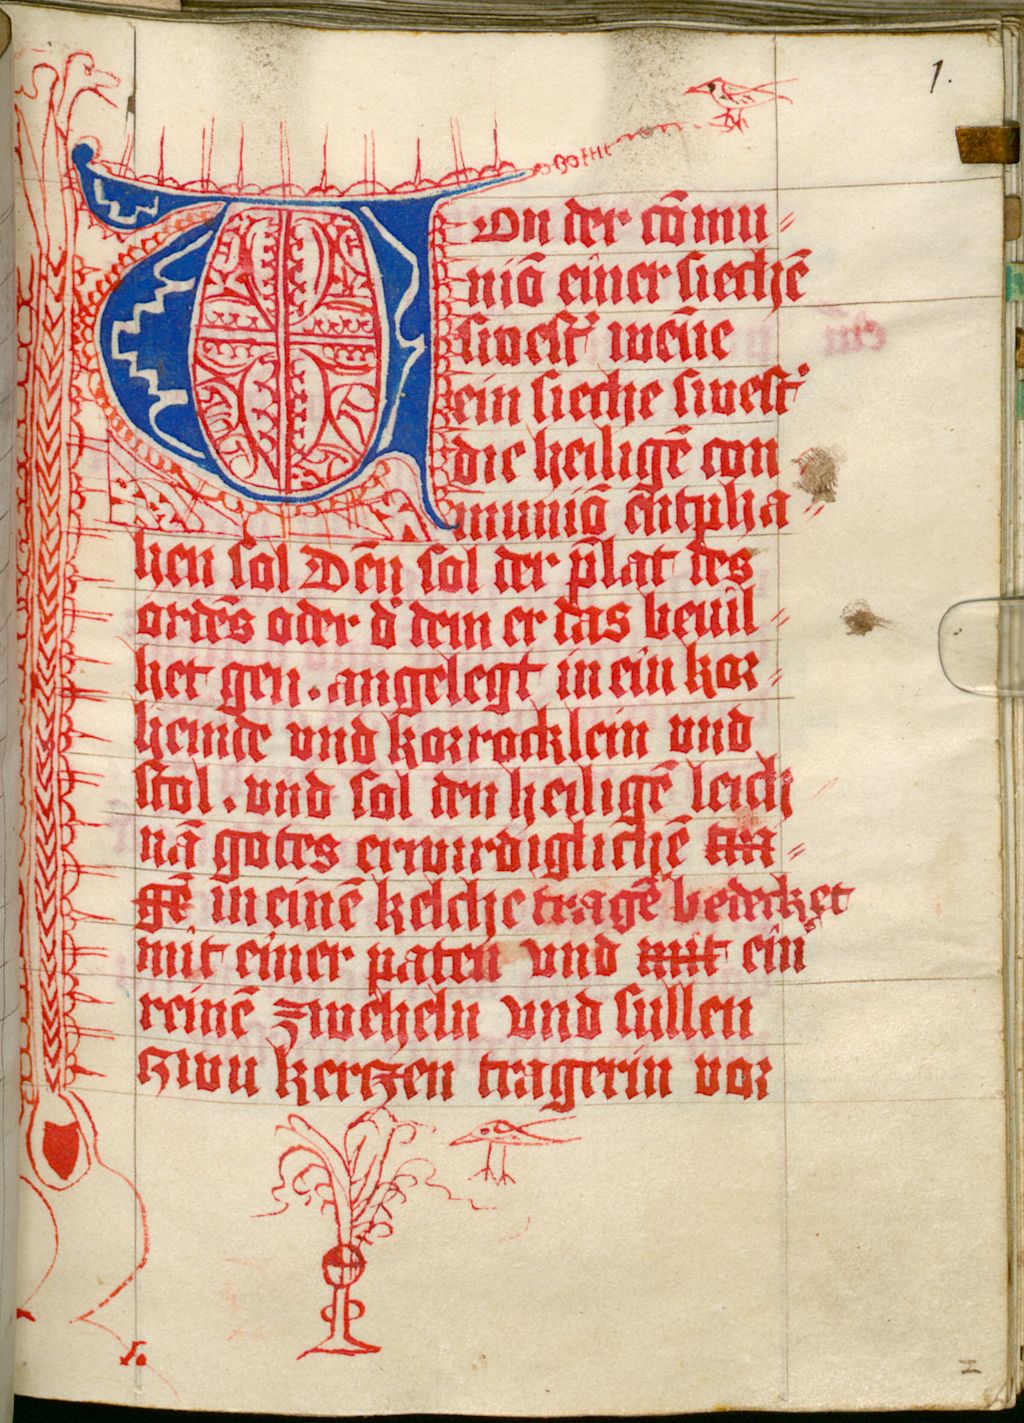 1.
Von der cōmu〃
niō einer siechē
swest' weñe
ein sieche swest'
die heiligē con
muniō entpha〃
hen sol Dēn sol der p̄lat des
ordēs oder d' dem er das bevil〃
het gen . angelegt in ein kor〃
hemde vnd korrocklein vnd
stol . vnd sol den heiligē leich
nā gotes erwirdiglichē tra〃
gē in einē kelche tragē bedecket
mit einer paten vnd mit ein
reinē zweheln vnd sullen
zwu kertzen tragerin vor